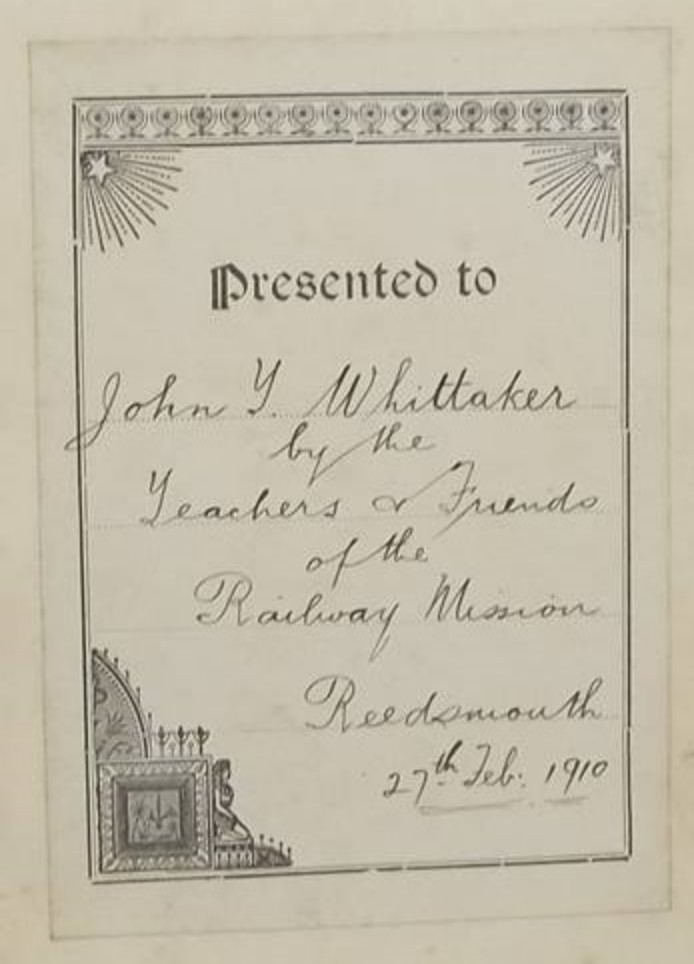 Presented to
John T. Whittaker
by the
Teachers & Friends
of the
Railway Mission
Reedsmouth
27th Feb: 1910